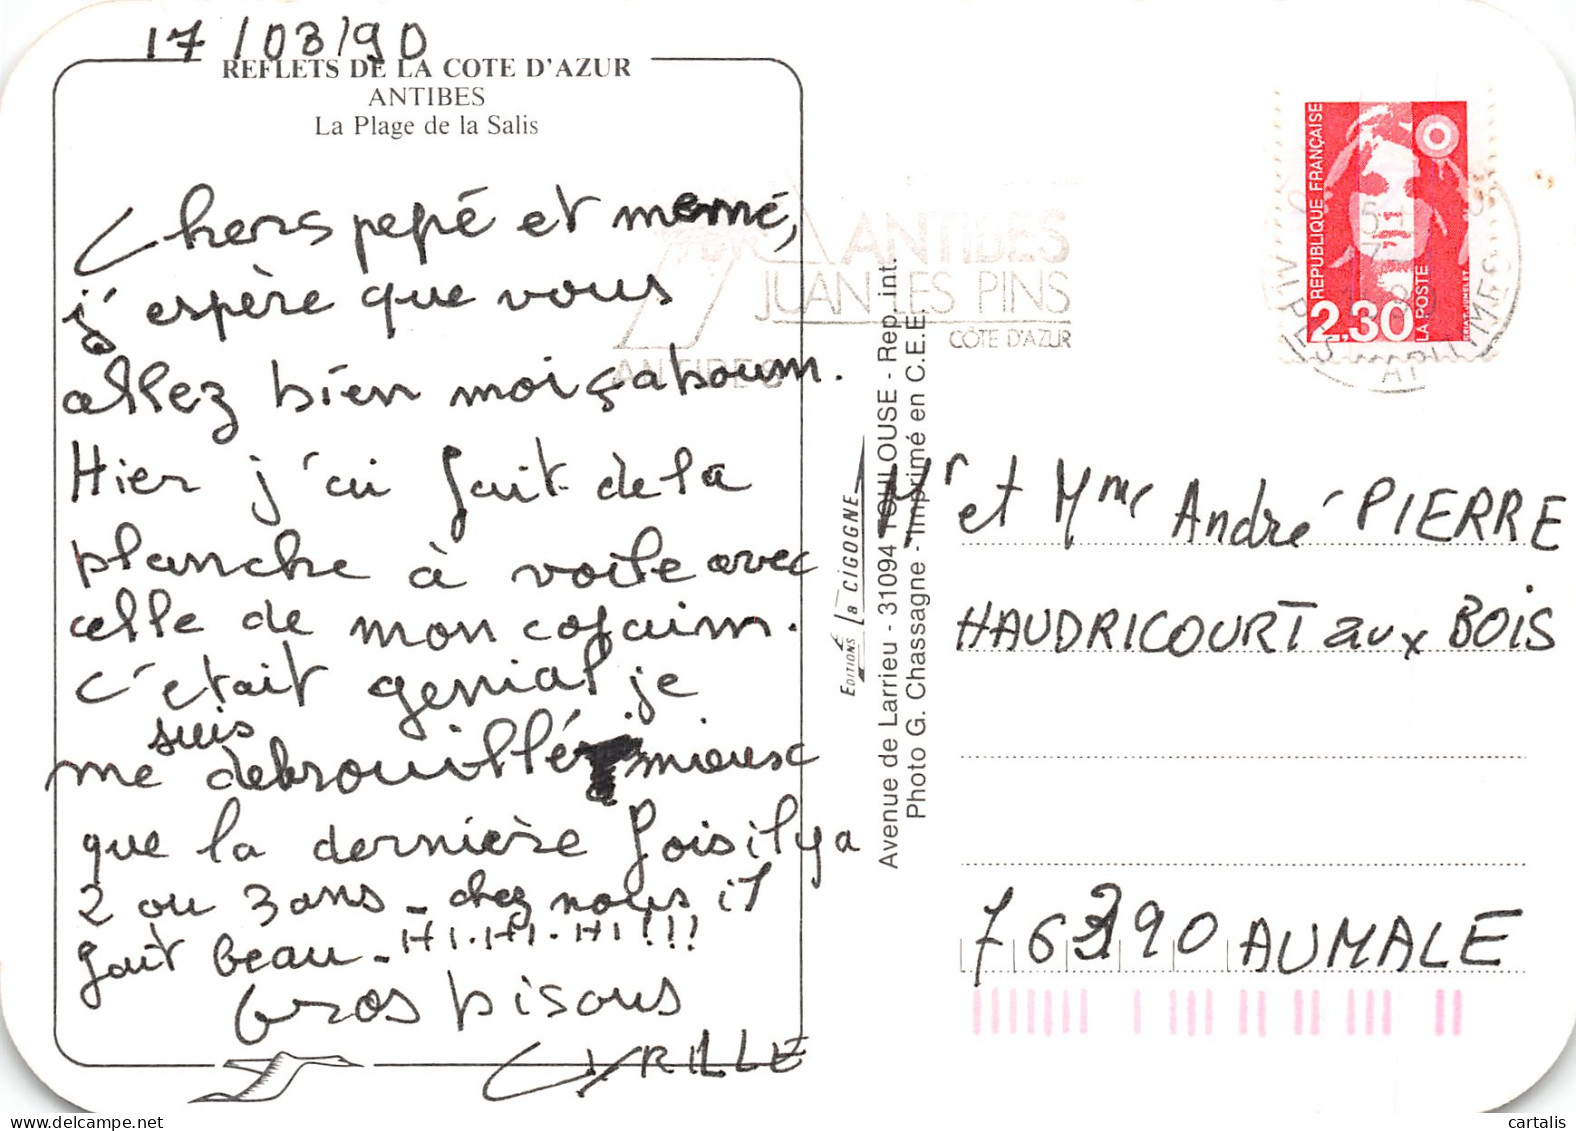 17/03/90
REFLETS DE LA COTE D'AZUR
ANTIBES
La Plage de la Salis
Chers pepé et memé,
j'espère que vous
allez bien moi ça boum.
Hier j'ai fait de la
planche à voile avec
celle de mon copain.
c'etait genial je
me suis debrouillé mieux
que la dernière fois il y a
2 ou 3 ans - chez nous il
fait beau - HI.HI.HI!!!
Gros bisous
CYRILLE
ANTIBES
JUAN LES PINS
CÔTE D'AZUR
ANTIBES
EDITIONS la CIGOGNE
Avenue de Larrieu - 31094 TOULOUSE - Rep. int.
Photo G. Chassagne - Imprimé en C.E.E.
REPUBLIQUE FRANÇAISE
2,30
LA POSTE
ALPES MARITIMES
Mr et Mme André PIERRE
HAUDRICOURT aux BOIS
76390 AUMALE
cartalis
delcampe.net